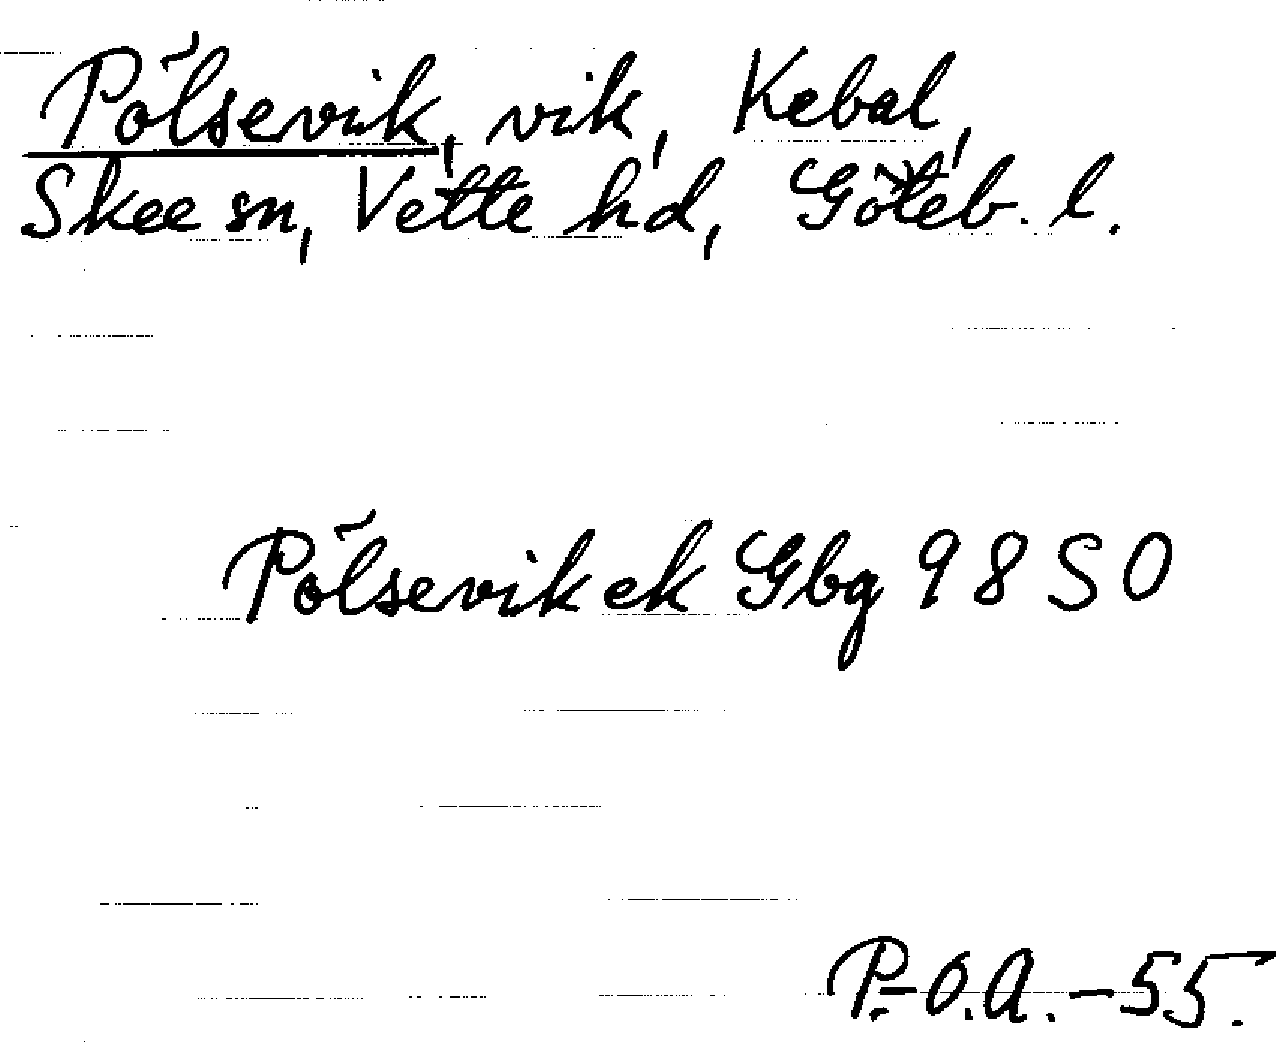 Pölsevik, vik, Kebal,
Skee sn, Vette hd, Göteb. l.
Pölsevik ek Gbg 98 SO
P.-O.A.-55.